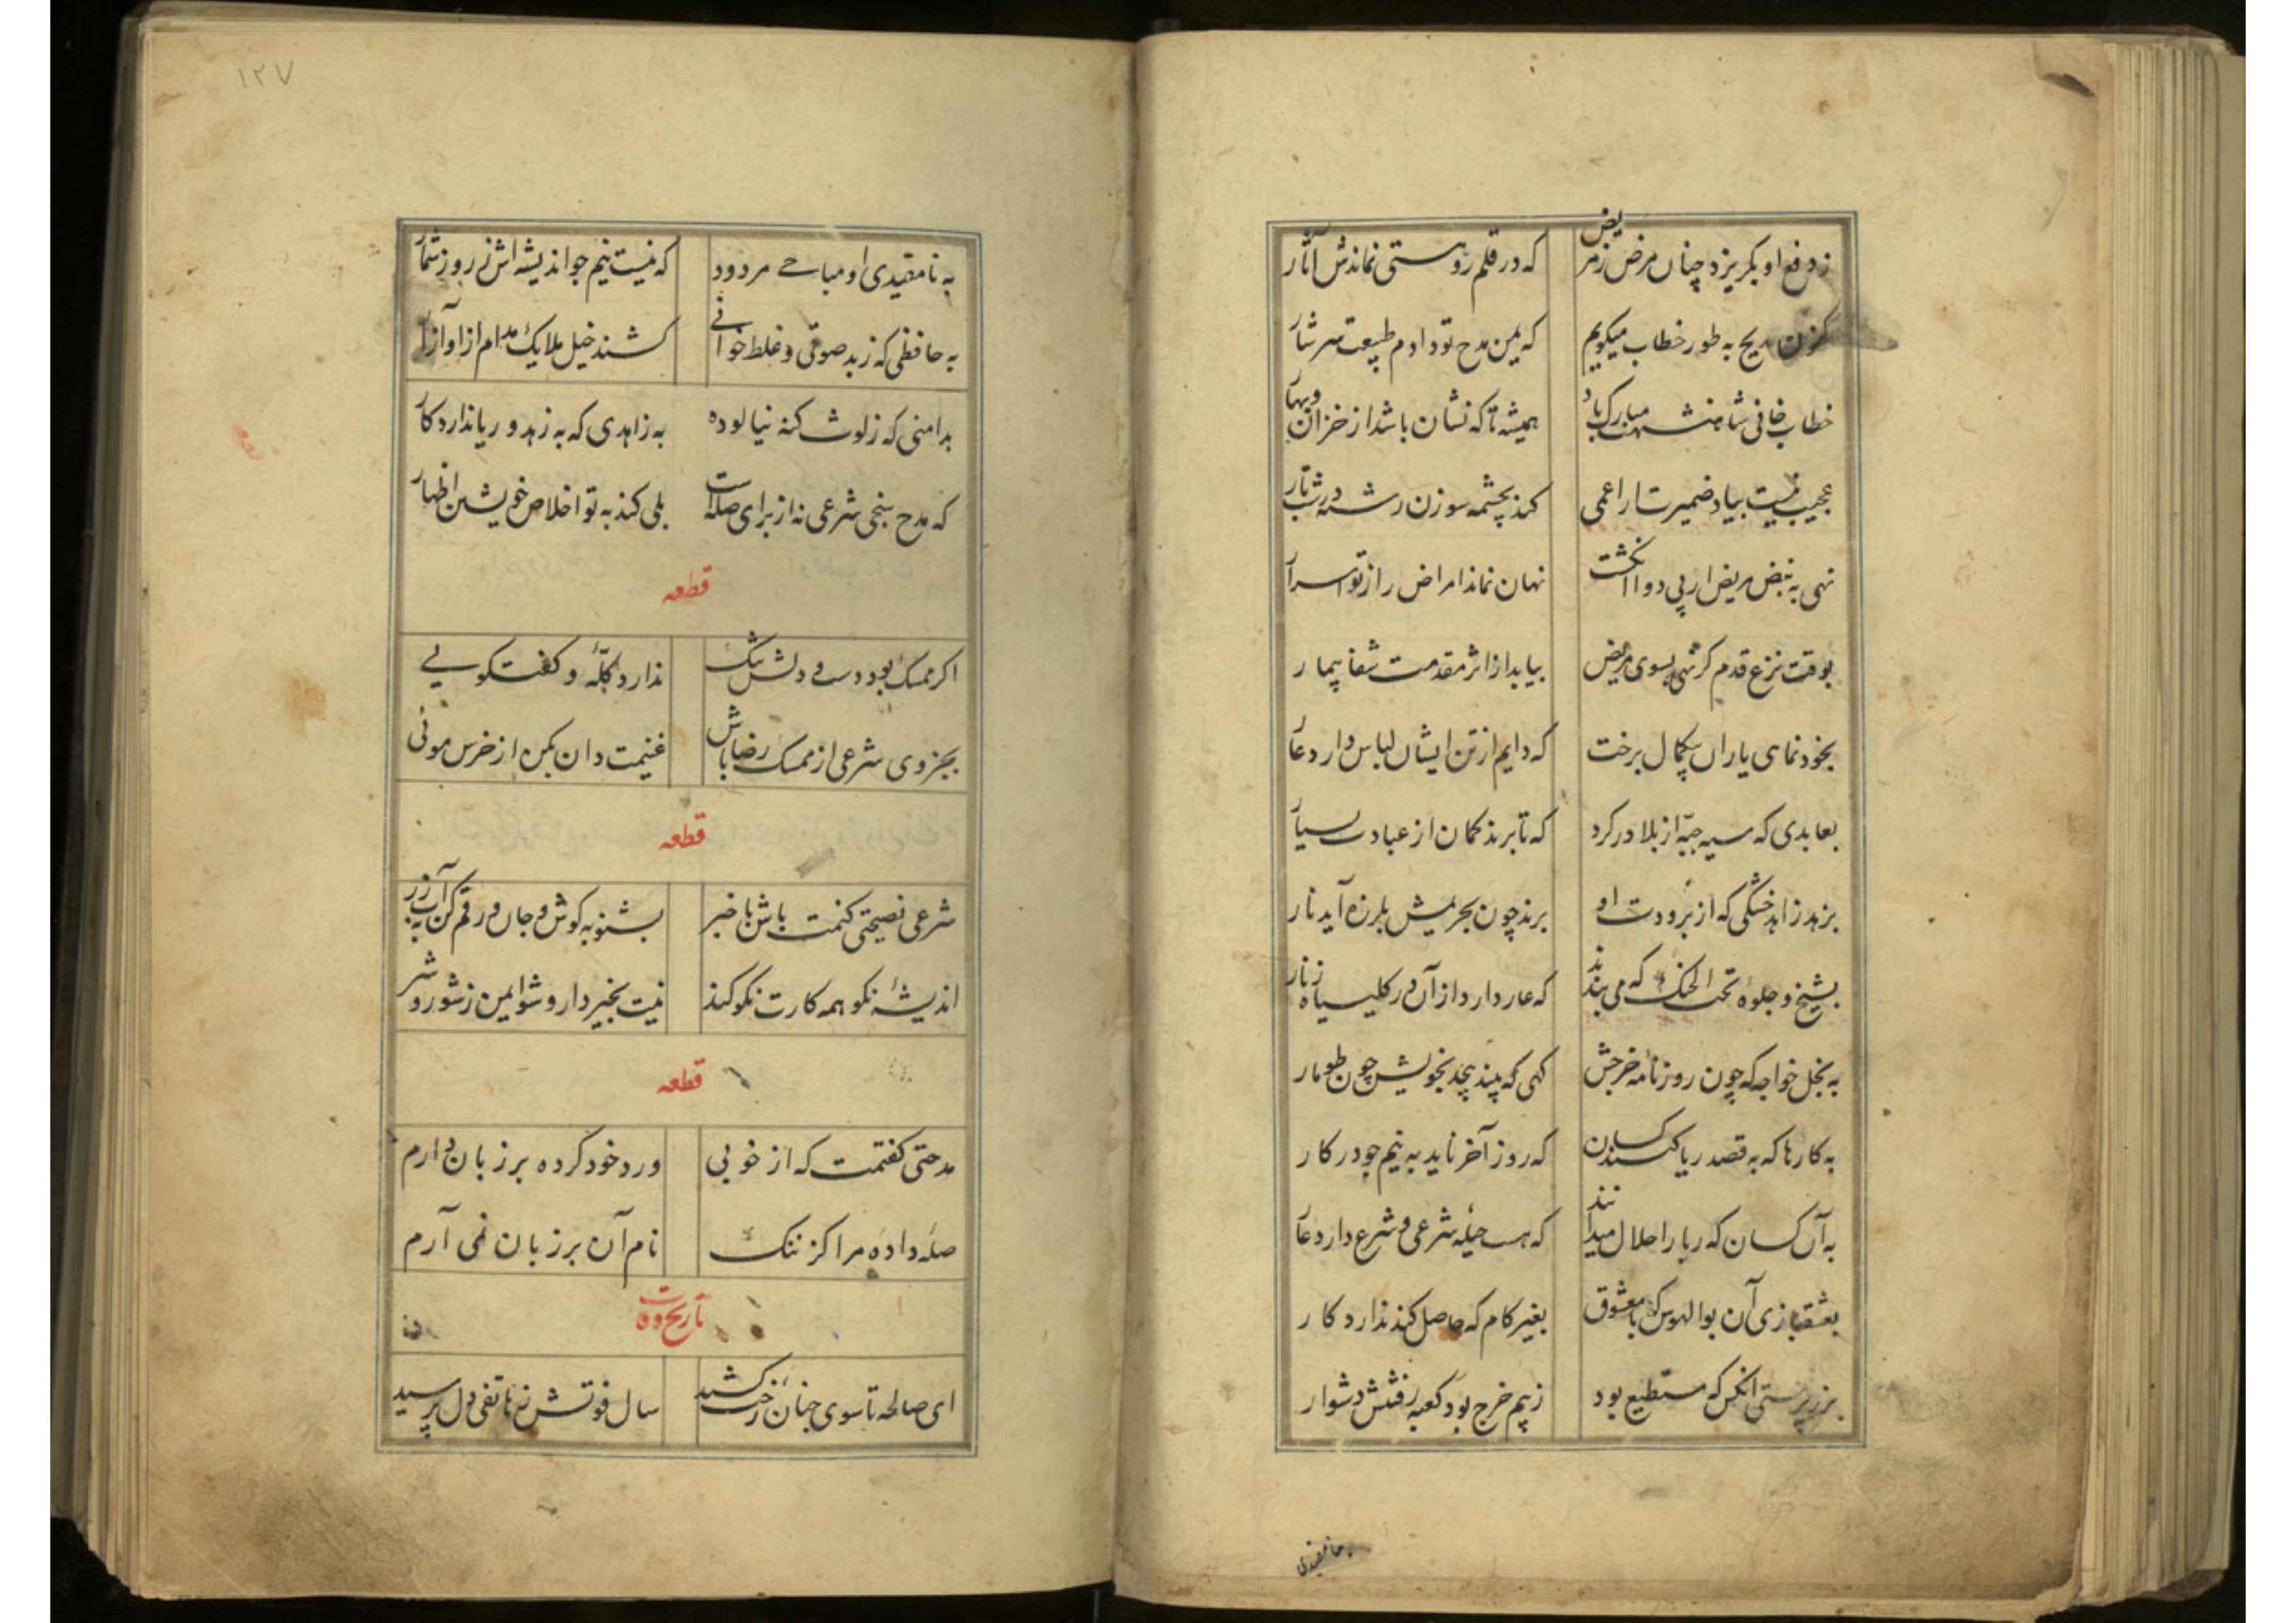 ز دفع او بگریزد چنان مرض ز مریض که در قلمرو هستی نماندش آثار
مدیح به طور خطاب میگویم که یمن مدح تو دادم طبیعت سرشار
خطاب خانی شاهنشهت مبارک باد همیشه تا که نشان باشد از خزان و بهار
عجیب نیست بیاد ضمیرت ار اعمی کند بچشمه سوزن رشته در شب تار
نهی به نبض مریض ار پی دوا انکشت نهان نماند امراض را ز تو اسرار
بوقت نزع قدم گر نهی بسوی مریض بیابد از اثر مقدمت شفا بیمار
بخود نمای یاران بیکمال برخت که دایم از تن ایشان لباس دارد عار
بعابدی که سیه جبه از بلا در کرد که تا برند گمان از عبادت بسیار
بزهد زاهد خشکی که از برودت او برند چون بجریمش بلرزه آید نار
بشیخ و جلوهٔ تحت الحنک که می بندند که عار دارد از آن در کلیسیا زنار
به بخل خواجه که چون روزنامه خرجش کهی که بیند پیچد بخویش چون طومار
به کارها که به قصد ریا کنند کسان که روز آخر ناید به نیم جو در کار
به آن کسان که ربا را حلال میدانند که هست حیله شرعی و شرع دارد عار
بعشقبازی آن بوالهوس که با معشوق بغیر کام که حاصل کند ندارد کار
بزر پرستی آنکس که مستطیع بود ز بیم خرج بود کعبه رفتنش دشوار
به نامقیدی
۱۲۷
به نامقیدی او مباحی مردود که نیست نیم جو اندیشه اش ز روز شمار
به حافظی که ز بد صوتی و غلط خوانی کشند خیل ملایک مدام از او آزار
بدامنی که ز لوث کنه نیالوده به زاهدی که به زهد و ریا ندارد کار
که مدح سنجی شرعی نه از برای صله است بلی کند به تو اخلاص خویشتن اظهار
قطعه
اگر ممسک بود دست و دلش تنک ندارد کله و گفتگویی
بجزوی شرعی از ممسک رضا باش غنیمت دان بکن از خرس موئی
قطعه
شرعی نصیحتی کنمت باش باخبر بشنو به گوش و جان و رقم کن به آب زر
اندیشهٔ نکو همه کارت نکو کند نیت بخیر دار و شو ایمن ز شور و شر
قطعه
مدحتی گفتمت که از خوبی ورد خود کرده بر زبان دارم
صله داده مرا کز ننک نام آن بر زبان نمی آرم
تاریخ وفات
ای صالحه تا سوی جنان رخت کشید سال فوتش ز هاتفی دل پرسید